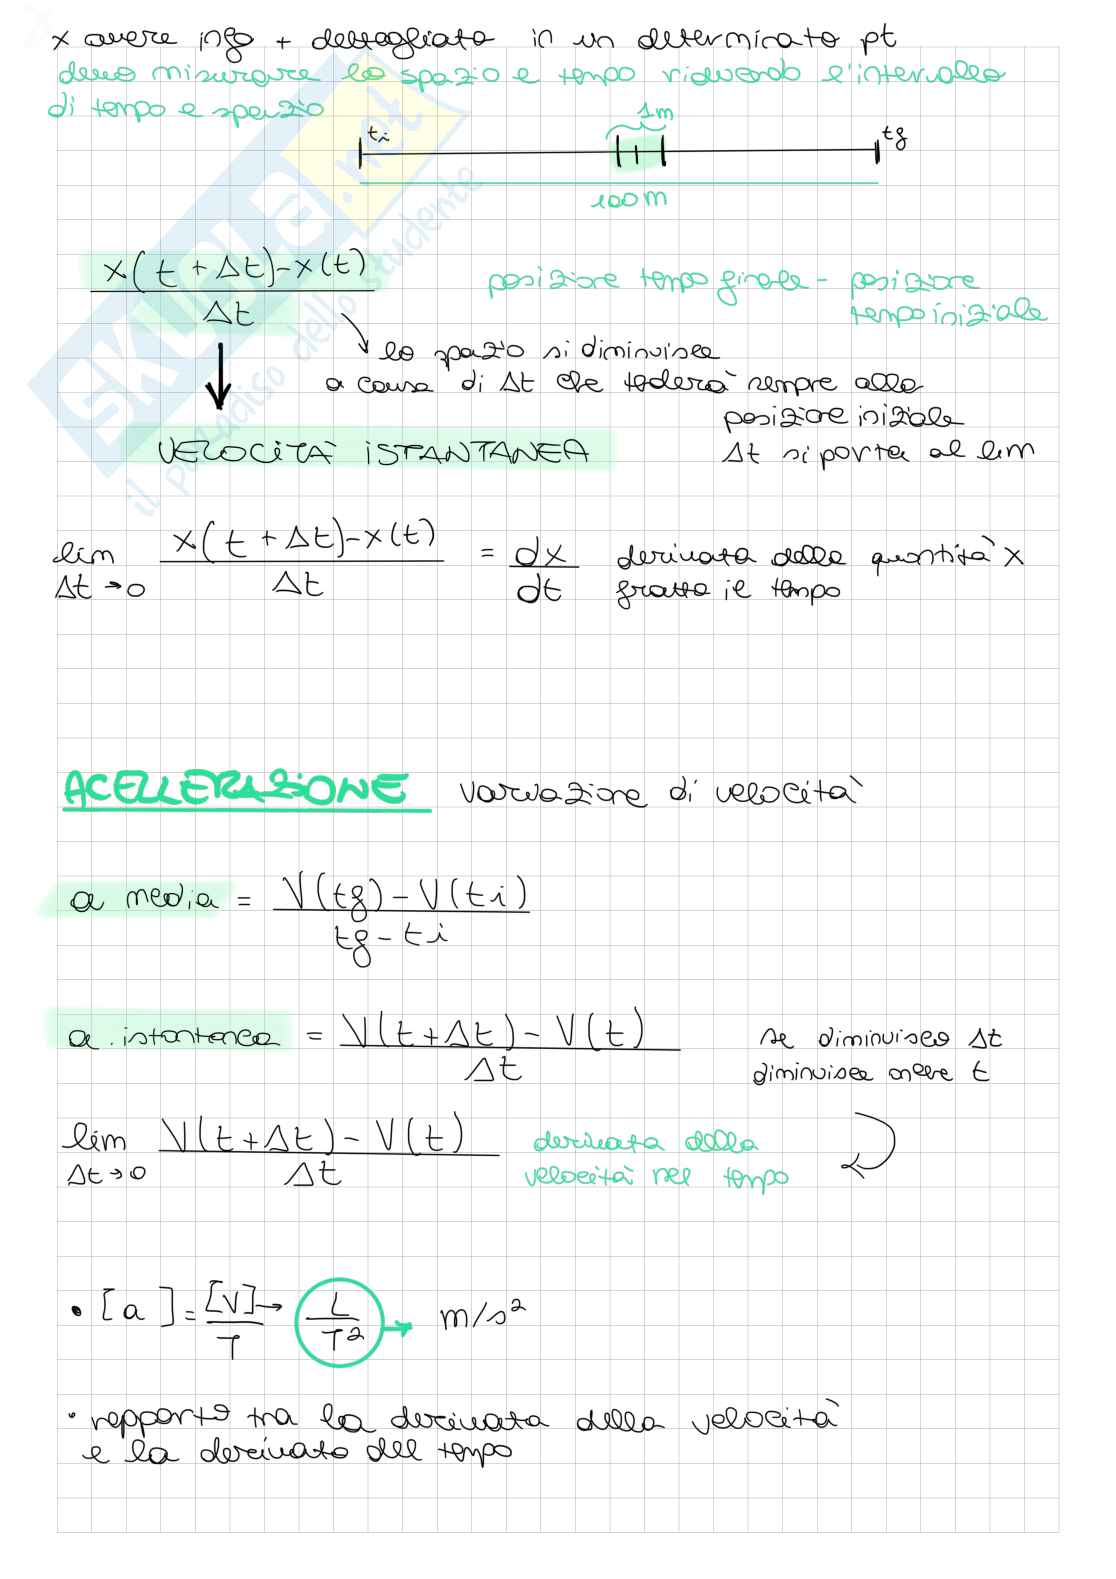 x avere info + dettagliate in un determinato pt
devo misurare lo spazio e tempo riducendo l'intervallo
di tempo e spazio
1m
ti
tf
100m
x(t + Δt) - x(t)
Δt
posizione tempo finale - posizione
tempo iniziale
lo spazio si diminuisce
a causa di Δt che tenderà sempre alla
posizione iniziale
VELOCITÀ iSTANTANEA
Δt si porta al lim
lim x(t + Δt) - x(t) = dx derivata della quantità x
Δt → 0 Δt dt fratto il tempo
ACELLERAZiONE variazione di velocità
a media = V(tf) - V(ti)
tf - ti
a. istantanea = V(t + Δt) - V(t)
Δt
se diminuisco Δt
diminuisce anche t
lim V(t + Δt) - V(t)
Δt → 0 Δt
derivata della
velocità nel tempo
• [a] = [V] → L → m/s²
T T²
• rapporto tra la derivata della velocità
e la derivata del tempo
SKUOLA.net
il paradiso dello studente